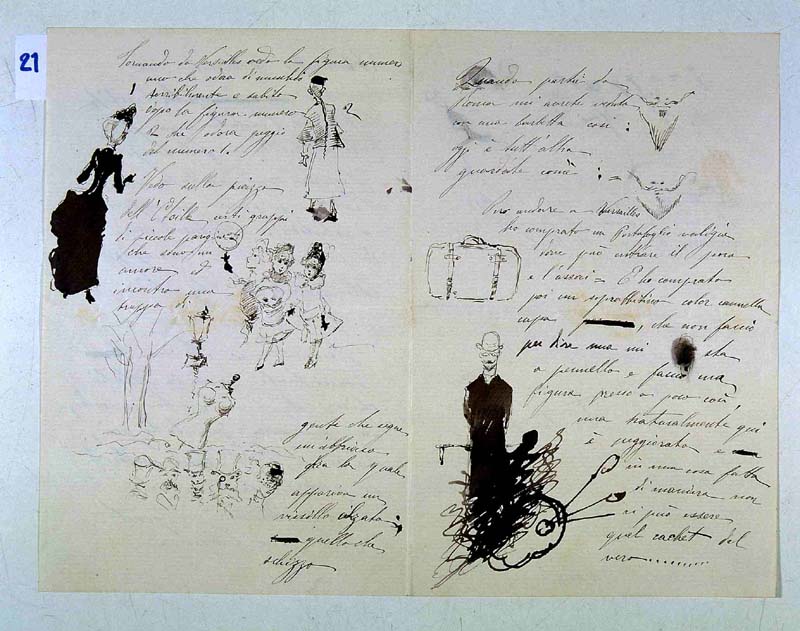 21
Tornando da Versailles vedo la figura numero
uno che odora di muschio
terribilmente e subito
dopo la figura numero
2 che odora peggio
del numero 1.
1
2
Vedo sulla piazza
dell'Étoile certi gruppi
di piccole
che sono un
amore ed
incontro una
truppa di
gente che segue
fra la quale
appariva un
vessillo alzato:
quello che
schizzo
Quando partii da
Roma mi avrete veduto
con una barbetta così:
oggi è tutt'altra
guardate com'è: =
Per andare a Versailles
ho comprato un Portafoglio valigia
dove può entrare il pora
e l'assori = E ho comprato
per un soprabitino color cannella
capa, che non faccio
per dire ma mi sta
a pennello e faccio una
figura presso a poco così,
ma naturalmente qui
è peggiorata e
in una cosa fatta
di maniera non
vi può essere
quel cachet del
vero..........